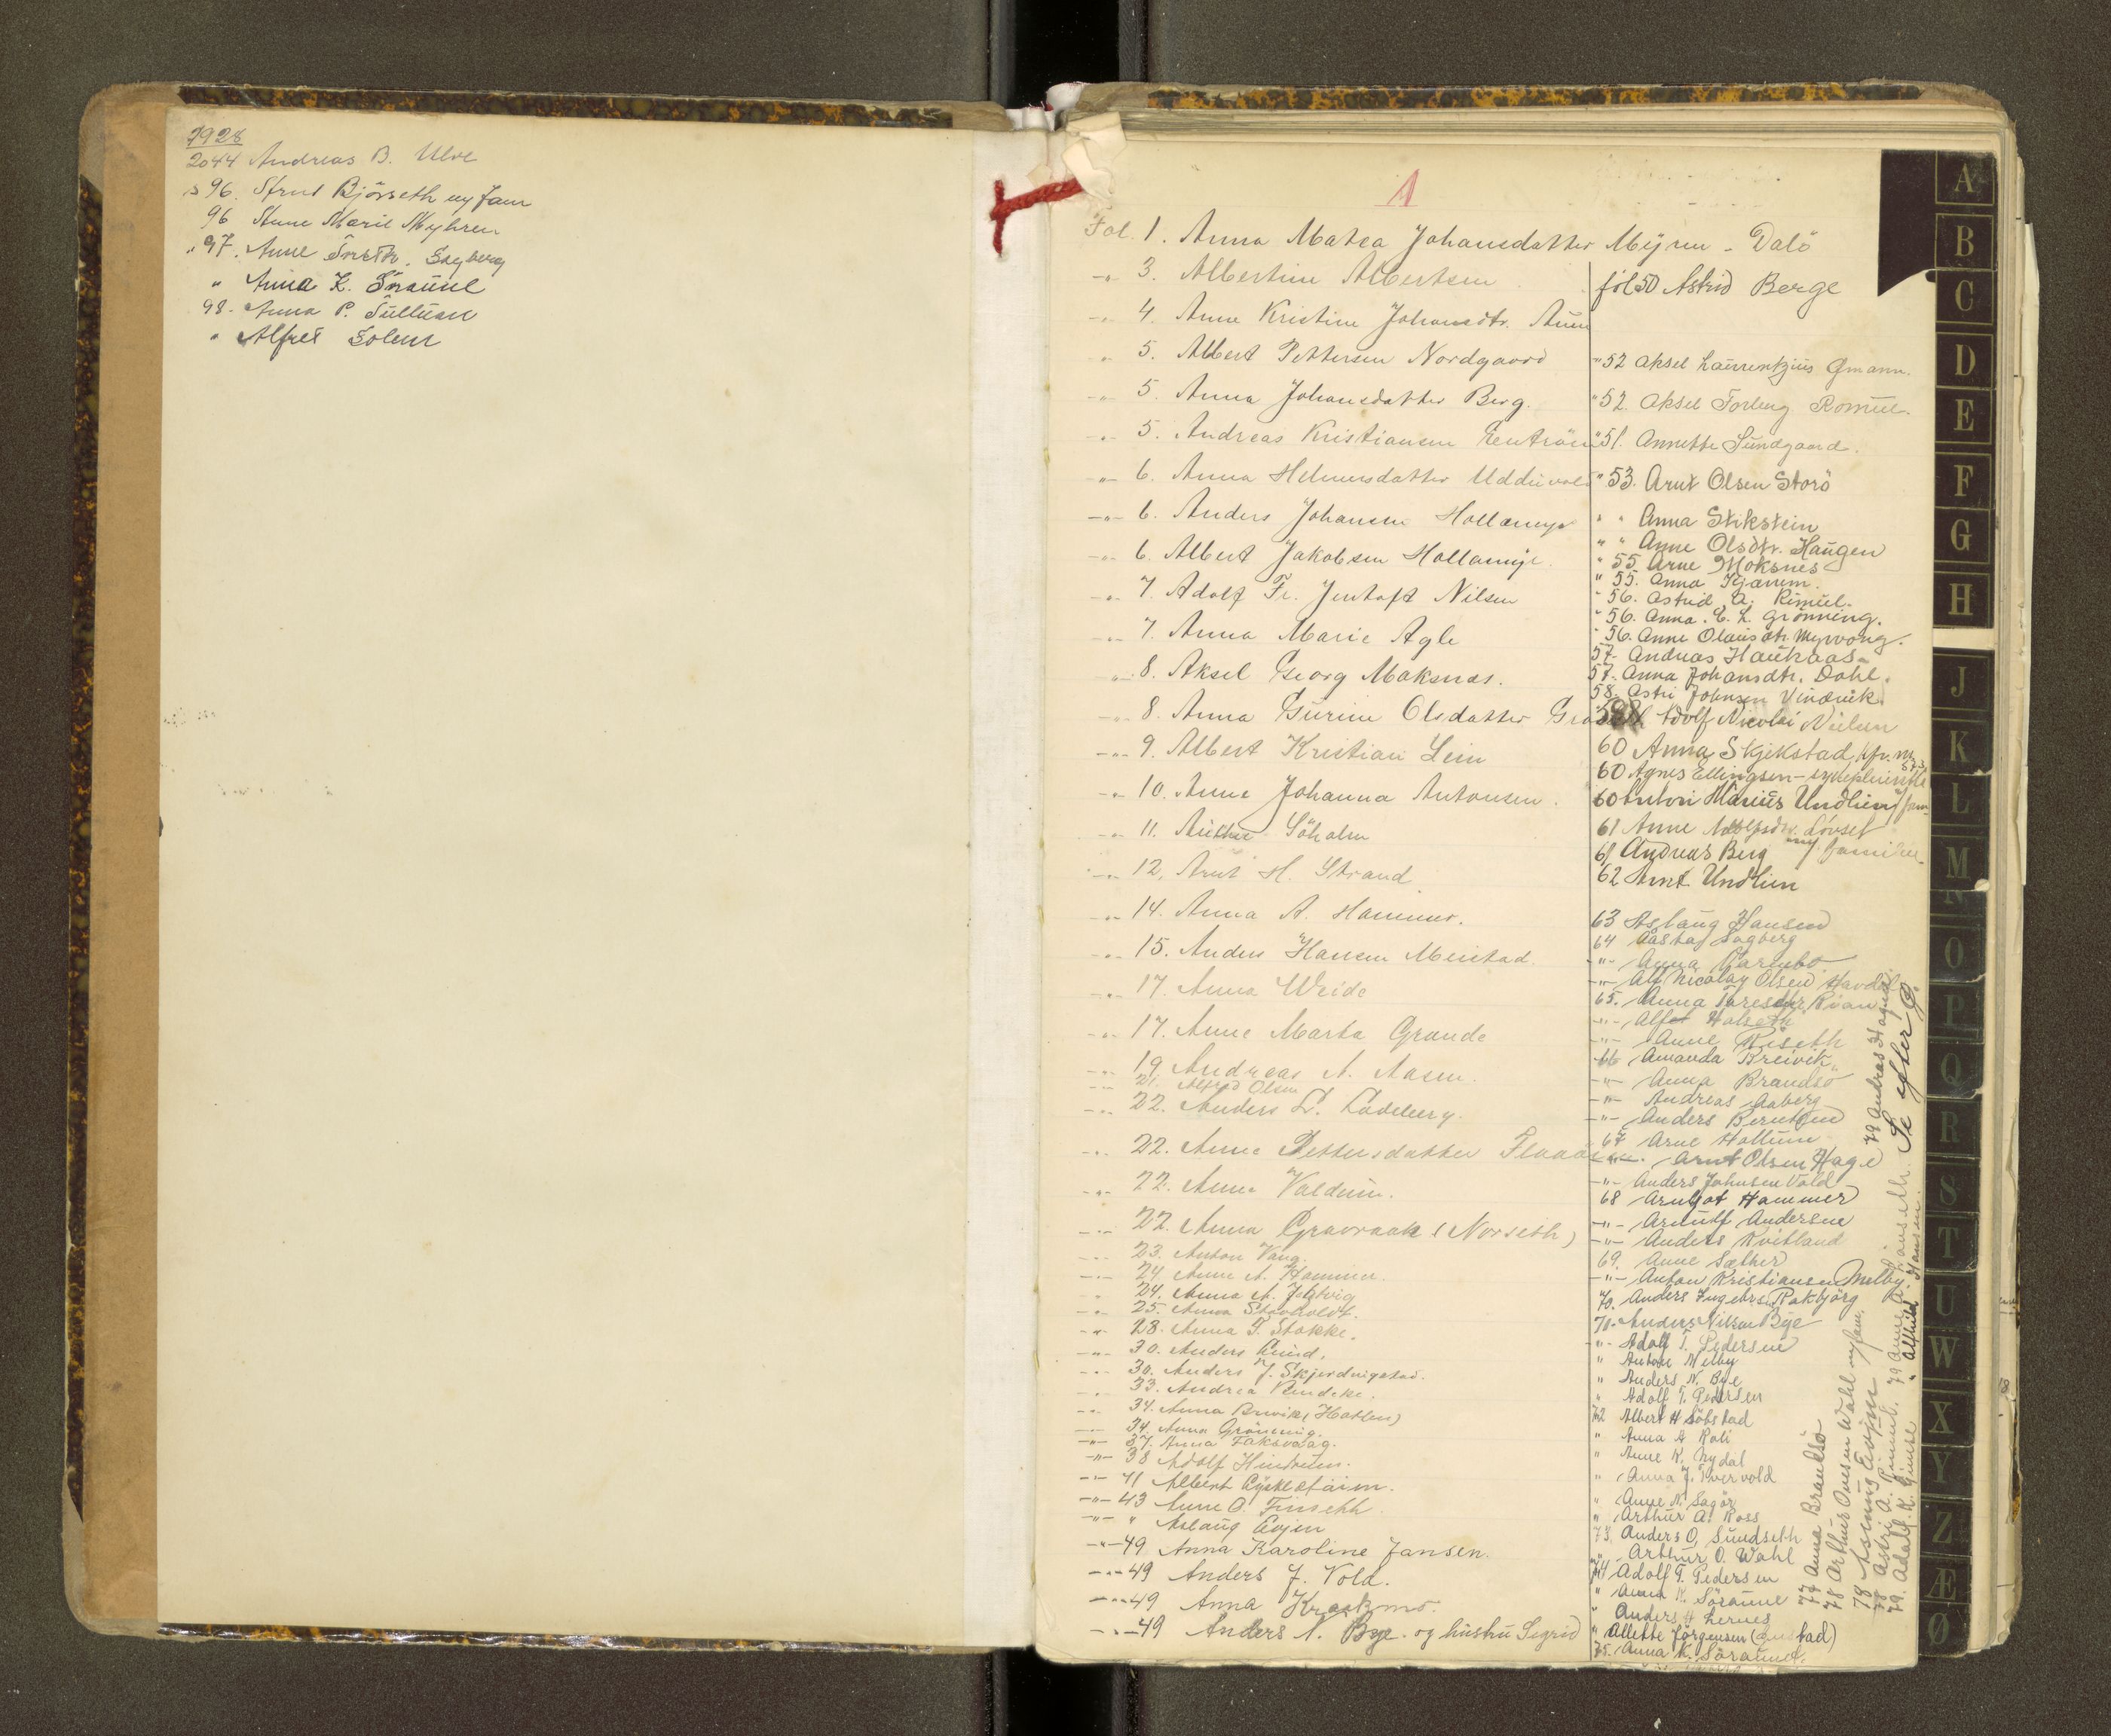 1928
2044 Andreas B. Ulve
96. Bjørseth m/fam
96 Anne Marie Myhren
" 97. Anne Sagberg
" Anna K.
98. Anna P.
" Alfred Solem
1
Fol. 1. Anna Matea Johansdatter Myren - Dalö
-"- 3. Albertine Albertsen
-"- 4. Anne Kristine Johansdtr. Aune
-"- 5. Albert Pettersen Nordgaard
-"- 5. Anna Johansdatter Berg.
-"- 5. Andreas Kristiansen
-"- 6. Anna Helmersdatter Udduvold
-"- 6. Anders Johansen Hollamyr
-"- 6. Albert Jakobsen Hollamyr.
-"- 7. Adolf Fr. Jentoft Nilsen
-"- 7. Anna Marie Agle
-"- 8. Aksel Georg Moksnes.
-"- 8. Anna Gurine Olsdatter
-"- 9. Albert Kristian Lein
-"- 10. Anna Johanna Antonsen.
-"- 11. Söholm
-"- 12. Arnt H. Strand
-"- 14. Anna A. Hammer.
-"- 15. Anders Hansen Meistad.
-"- 17. Anna Weide
-"- 17. Anne Marta Grande
-"- 19 Andreas A. Aasen.
-"- 21. Alfred Olsen
-"- 22. Anders L. Ladeberg.
-"- 22. Anne Pettersdatter
-"- 22. Anna Valdum.
-"- 22. Anna Gravraak (Norseth)
-"- 23. Anton Vang.
-"- 24 Anne A. Hammer.
-"- 24. Anna A.
-"- 25. Anna
-"- 28. Anna T. Stokke.
-"- 30. Anders Lund.
-"- 30. Anders J. Skjerdingstad.
-"- 33. Andrea
-"- 34. Anna Buvik (Hatlen)
-"- 34. Anna Grönning.
-"- 37. Anna Faksvaag.
-"- 38 Adolf Hindrum.
-"- 41 Albert
-"- 43 Anne O. Finseth
-"- " Aslaug Evjen
-"- 49 Anna Karoline Jansen.
-"- 49 Anders J. Vold.
-"- 49 Anna Kroekmo.
-"- 49 Anders N. Bye. og hustru Sigrid
fol 50 Astrid Berge
" 52 Aksel Laurentzius Gmann.
" 52. Aksel Torberg Romul.
" 51. Annette Sundgaard.
" 53. Arnt Olsen Storö
" " Anna Stikstein
" " Anne Olsdtr. Haugen
" 55. Arne Moksnes
" 55. Anna Kjærem.
" 56. Astrid A. Rimul.
" 56. Anna. E. L. Grönning.
" 56. Anne Olausdtr. Myrvong.
57. Andreas Haukaas
57. Anna Johansdtr. Dahl.
58. Astri Johnsen Vinsnuk.
Adolf Nicolai Nielsen
60 Anna Skjekstad
60 Agnes Ellingsen - sykepleierske
60 Anton Marius Undlien m/fam.
61 Anne Adolfsdtr. Lövset
61 Andreas Berg m/ familie
62 Arnt Undlien
63 Aslaug Hansen
64 Aasta Sagberg
-"- Anna
-"- Alf Nicolay Olsen Havdal
65. Anna Rian
-"- Alf Halseth
-"- Anne Riseth
66 Amanda Breivik
-"- Anna Brandsö
-"- Andreas Aaberg
-"- Anders Berntsen
67 Arne Hollum
-"- Arnt Olsen Hage
-"- Anders Johnsen Vold
68 Arnljot Hammer
-"- Arnulf Andersen
-"- Anders Kvitland
69. Anne Sæther
-"- Anton Kristiansen Melby.
70. Anders Ingebr. Rokbjörg
70. Anders Nilsen Bye
"- Adolf T. Pedersen
" Anton Melby
" Anders N. Bye
" Adolf T. Pedersen
72 Albert H Söbstad
" Anna H Roli
" Anne K. Nydal
" Anna J. Tvervold
" Anne N. Sagör
" Arthur A. Ross
73. Anders O. Sundseth
" Arthur O. Wahl
74 Adolf T. Pedersen
" Anna K. Söraune
" Anders H Lernes
" Allette Jörgensen
75. Anna K. Söraune.
77 Anna Brandsö
78 Arthur Onsen Wahl m/fam.
78 Evjen
78 Astri A. Rimul.
79. Adolf K. Gimse
79 Anne
" Alfhild Hansen.
79 Andreas Hagen
Se efter G.
A
B
C
D
E
F
G
H
J
K
L
M
N
O
P
Q
R
S
T
U
W
X
Y
Z
Æ
Ø